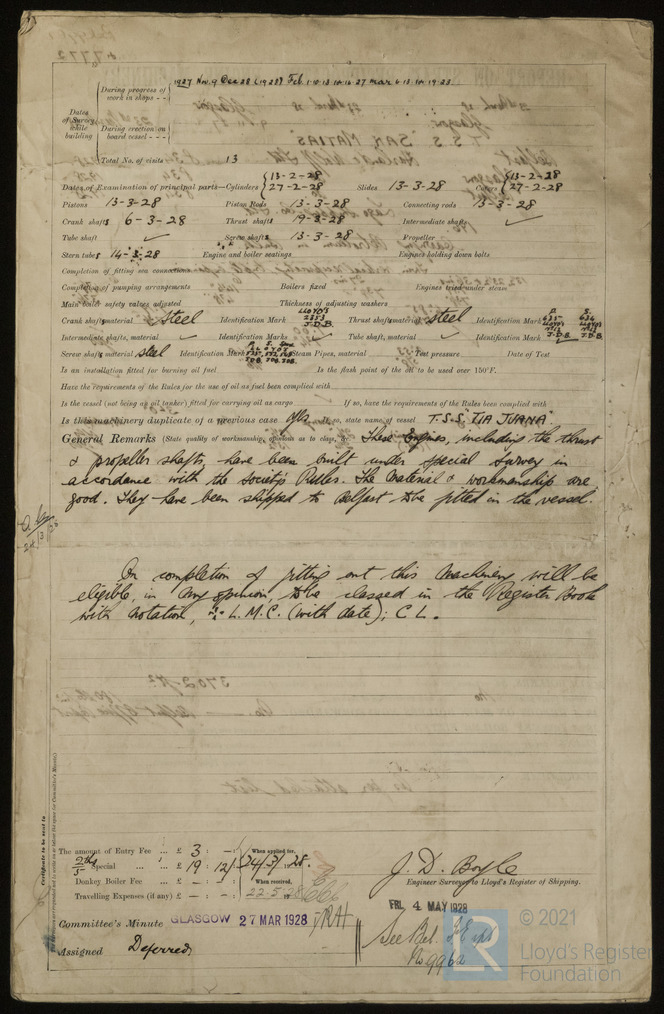 During progress of work in shops - - 1927 Nov. 9 Dec 28 (1928) Feb. 1-10-13-14-16-27 Mar 6-13-14-19-23
Dates of Survey while building
During erection on board vessel - - -
Total No. of visits 13
Dates of Examination of principal parts—Cylinders 13-2-28 27-2-28 Slides 13-3-28 Covers 13-2-28 27-2-28
Pistons 13-3-28 Piston Rods 13-3-28 Connecting rods 13-3-28
Crank shaft 6-3-28 Thrust shaft 19-3-28 Intermediate shafts ✓
Tube shaft ✓ Screw shaft 13-3-28 Propeller
Stern tube 14-3-28 Engine and boiler seatings Engines holding down bolts
Completion of fitting sea connections
Completion of pumping arrangements Boilers fixed Engines tried under steam
Main boiler safety valves adjusted Thickness of adjusting washers
Crank shaft material Steel Identification Mark LLOYD'S 2553 J.D.B. Thrust shaft material Steel Identification Mark P. S. LLOYD'S J.D.B.
Intermediate shafts, material ✓ Identification Marks ✓ Tube shaft, material ✓ Identification Mark ✓
Screw shaft, material Steel Identification Mark Steam Pipes, material Test pressure Date of Test
Is an installation fitted for burning oil fuel Is the flash point of the oil to be used over 150°F.
Have the requirements of the Rules for the use of oil as fuel been complied with
Is the vessel (not being an oil tanker) fitted for carrying oil as cargo If so, have the requirements of the Rules been complied with
Is this machinery duplicate of a previous case Yes If so, state name of vessel T.S.S. TIA JUANA
General Remarks (State quality of workmanship, opinions as to class, &c. These Engines, including the thrust
& propeller shafts, have been built under special survey in
accordance with the Society's Rules. The material & workmanship are
good. They have been shipped to Belfast to be fitted in the vessel.
24/3/28
On completion of fitting out this machinery will be
eligible, in my opinion, to be classed in the Register Book
with notation, L.M.C. (with date); C L.
Certificate to be sent to
The amount of Entry Fee ... £ 3 : - : When applied for,
2/5ths Special ... £ 19 : 12 : 24/3/28.
Donkey Boiler Fee ... £ — : — : When received,
Travelling Expenses (if any) £ — : — : 22-5-28
J. D. Boyle
Engineer Surveyor to Lloyd's Register of Shipping.
Committee's Minute GLASGOW 27 MAR 1928
FRI. 4 MAY 1928
Assigned Deferred
See Bel. J.E. rpt
No 9962
© 2021
Lloyd's Register
Foundation